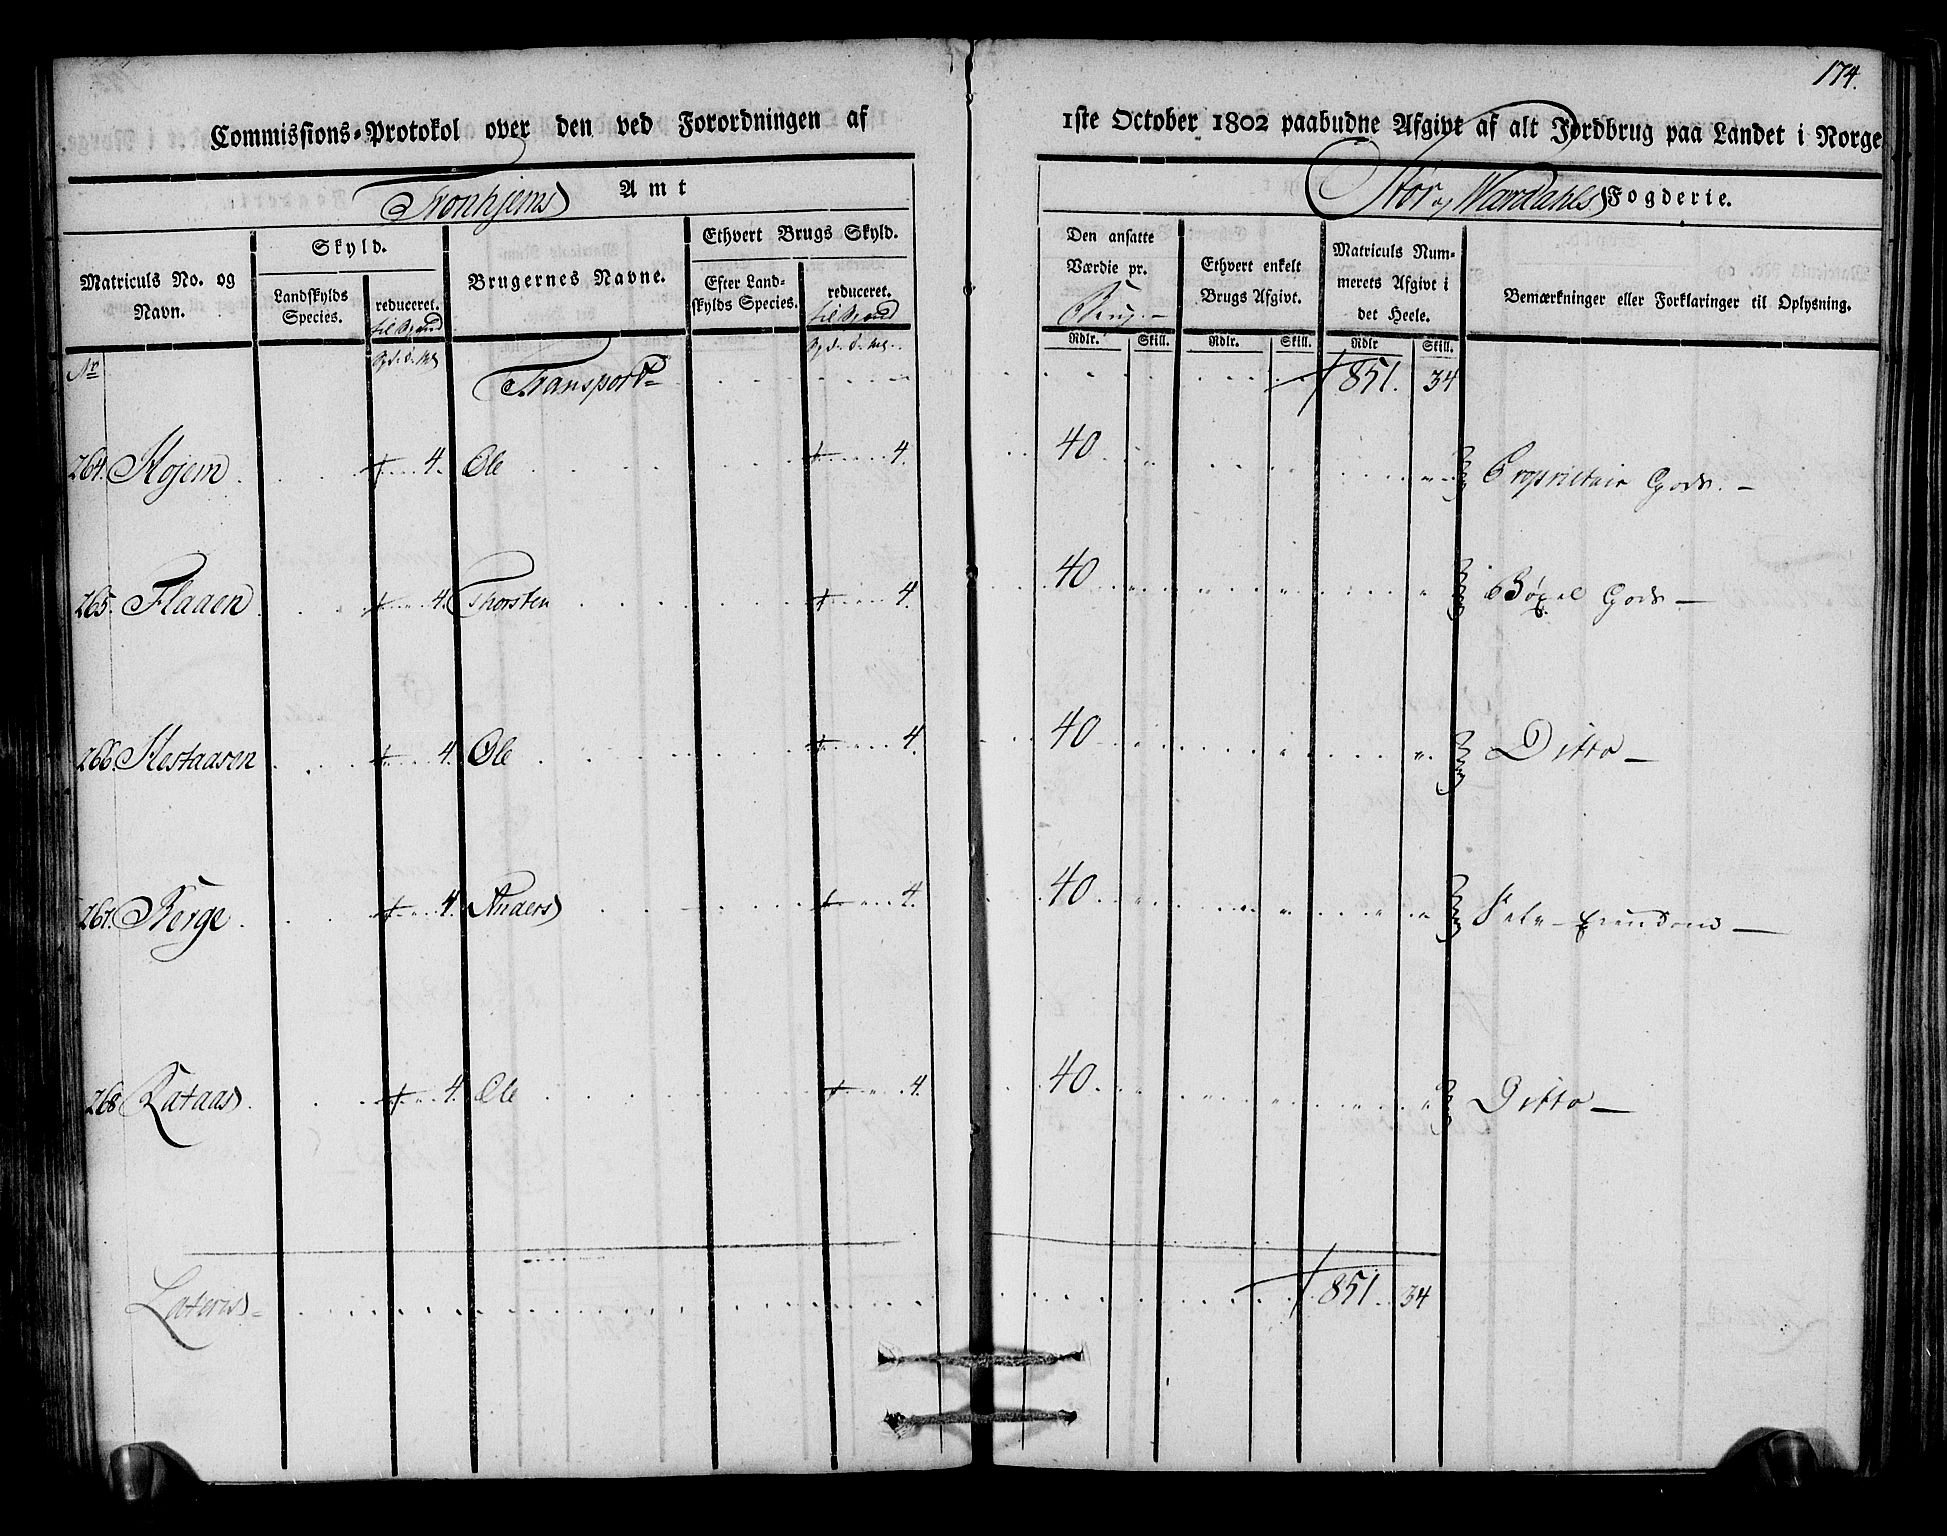 174.
Commissions-Protokol over den ved Forordningen af 1ste October 1802 paabudne Afgivt af alt Jordbrug paa Landet i Norge
Tronhjems Amt
Stør og Wærdahls Fogderie.
Matriculs No. og Navn.
Skyld.
Landskylds Species.
reduceret.
Brugernes Navne.
Ethvert Brugs Skyld.
Efter Landskylds Species.
reduceret.
Den ansatte Værdie pr.
Ethvert enkelt Brugs Afgivt.
Matriculs Nummerets Afgivt i det Heele.
Bemærkninger eller Forklaringer til Oplysning.
Rdlr. Skill. Rdlr. Skill. Rdlr Skill.
No Transport 851. 34
264. Hojem 4. Ole 4. 40 Proprietair Gods.
265. Flaaen 4. Thorsten 4. 40 Bøxel Gods
266 Hestaasen 4. Ole 4. 40 Ditto
267. Berge 4. Anders 4. 40 Selv-Eiendom
268 Rataas 4. Ole 4. 40 Ditto
Lateris 851. 34